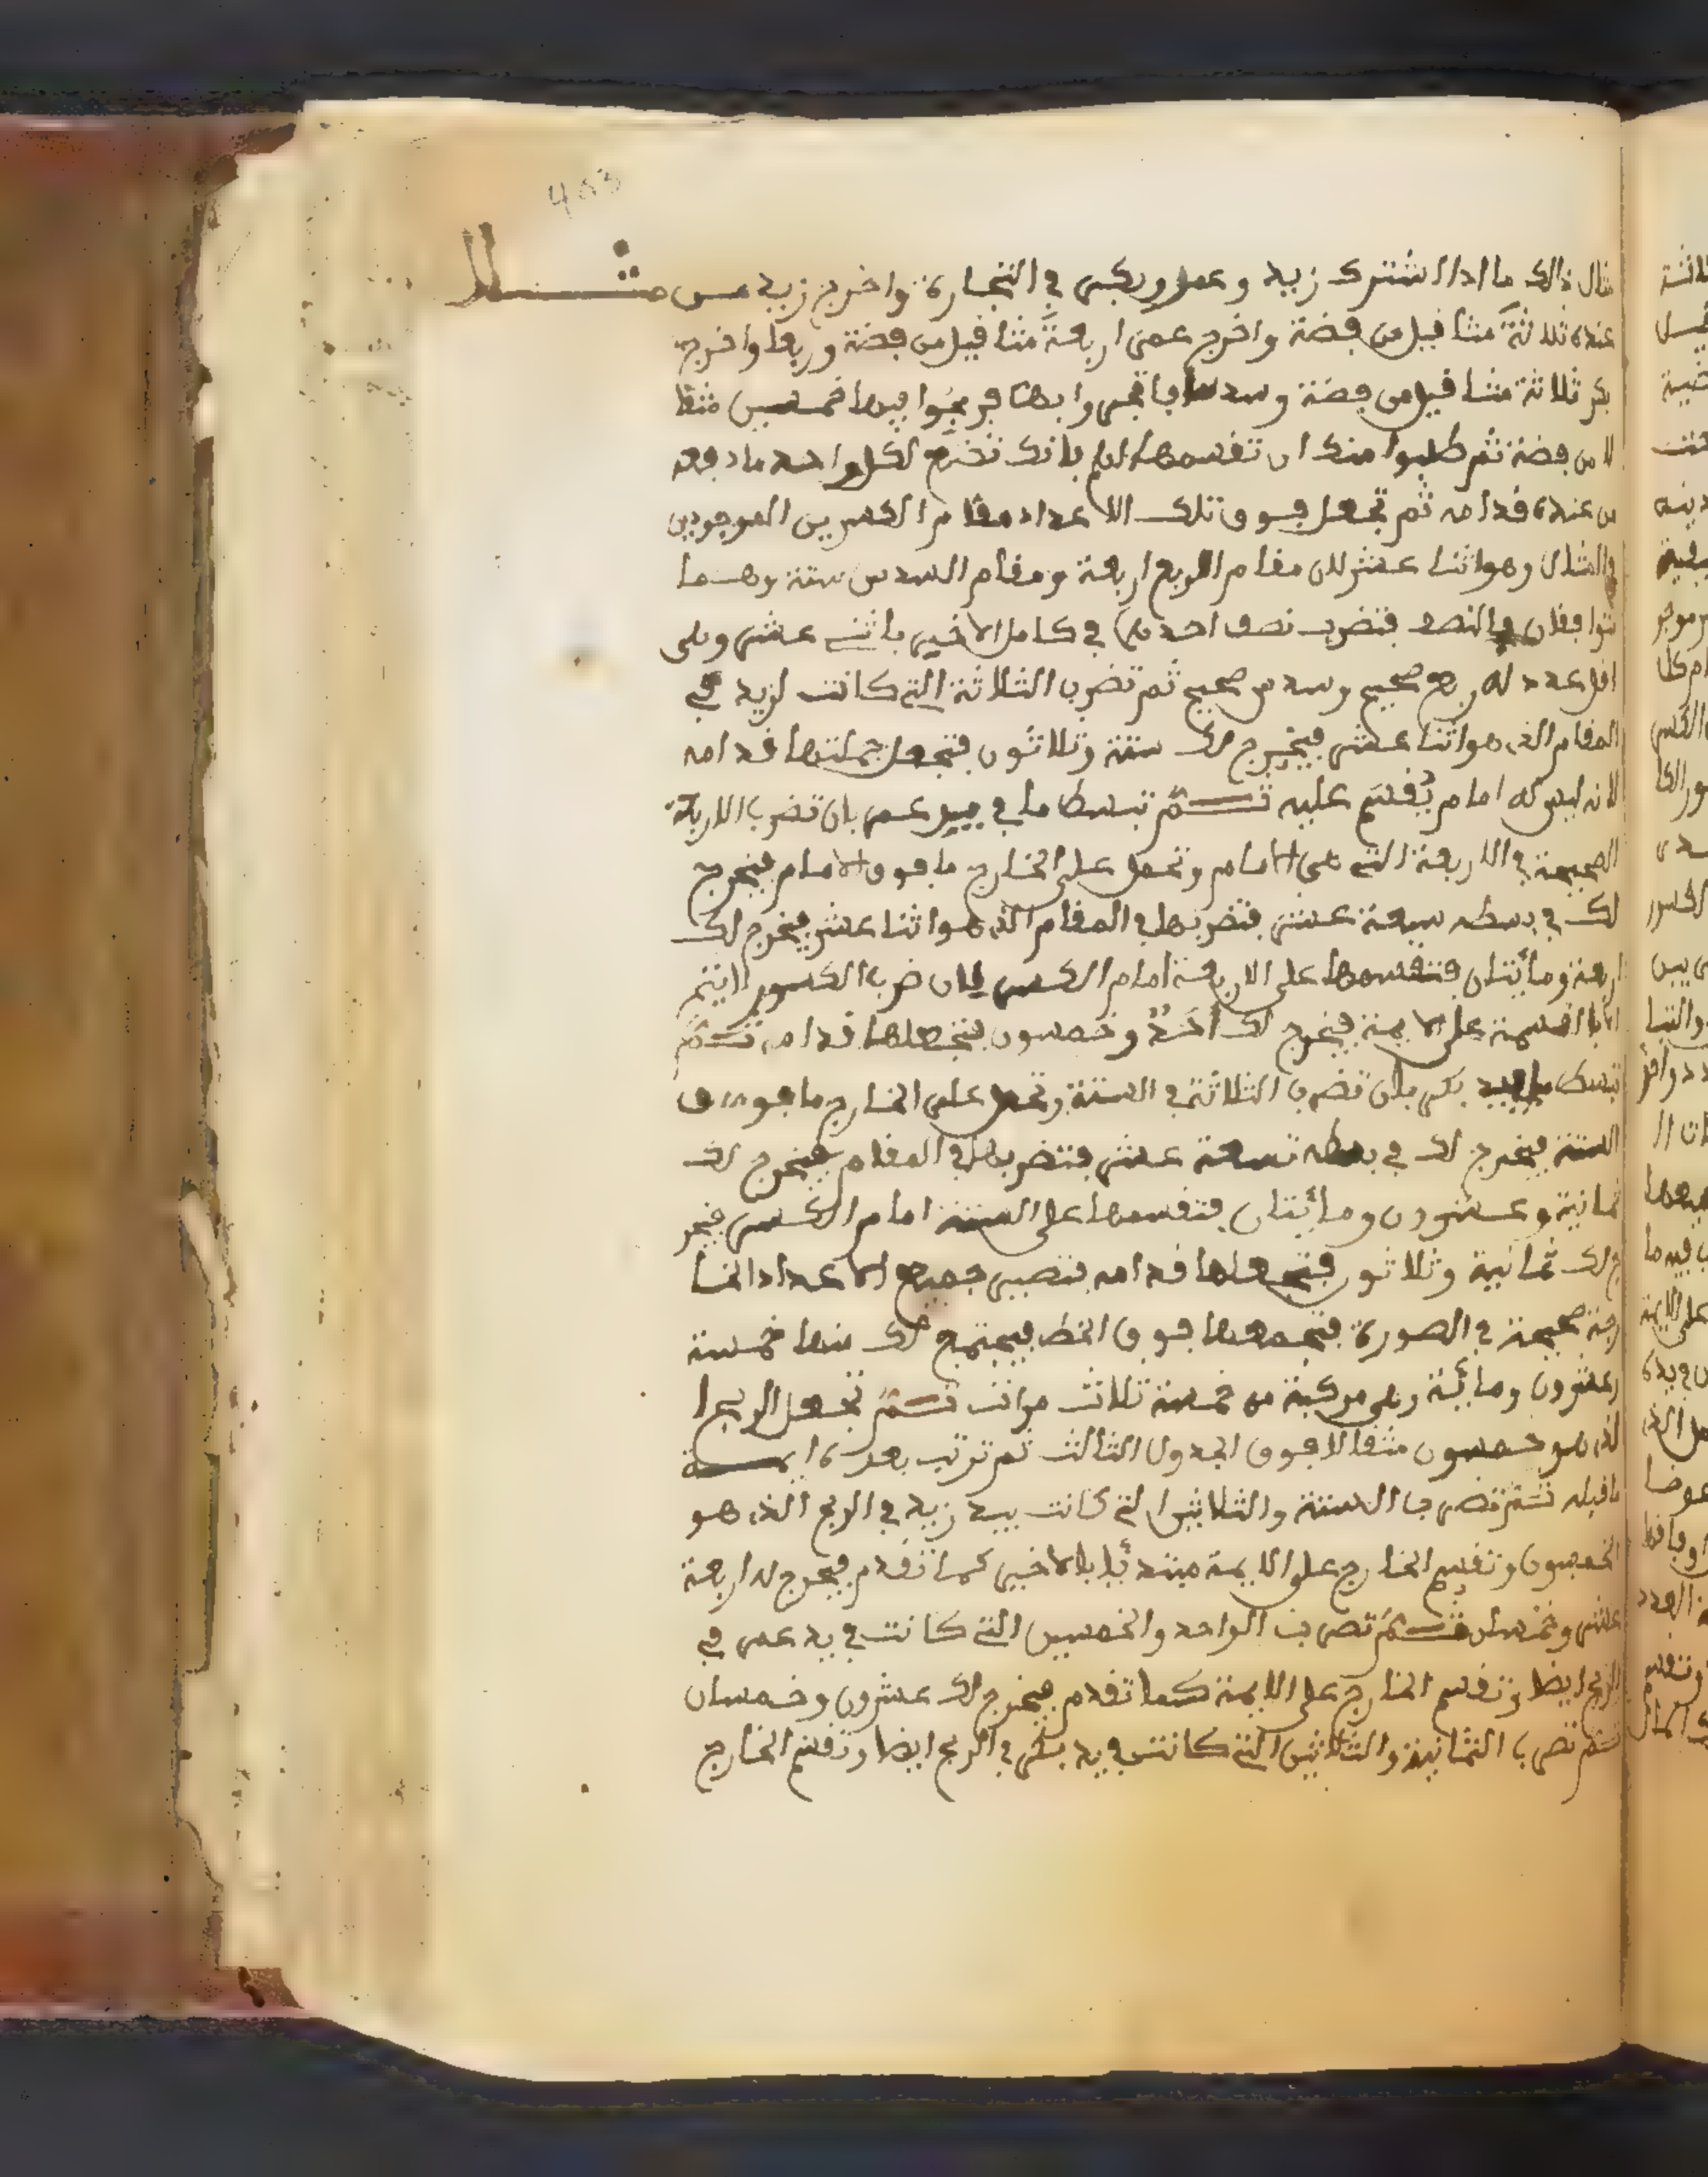 مثال ذالك ما اذا اشترك زيد وعمر وبكر في التجارة واخرج زيد من
مثــــلا
عنده ثلاثة مثاقيل من فضة واخرج عمر اربعة مثاقيل من فضة وربعا واخرج
بكر ثلاثة مثاقيل من فضة وسدسا فاتجروا بها فربحوا فيها خمسين مثقا
لا من فضة ثم طلبوا منك ان تقسمها لهم فانك تضع لكل واحد ما دفعه
من عنده قدامه ثم تجعل فوق تلك الاعداد مقام الكسرين الموجودين
في المثال وهو اثنا عشر لان مقام الربع اربعة ومقام السدس ستة وهما
متوافقان بالنصف فتضرب نصف احدهما في كامل الاخير باثنى عشر وهى
اقل عدد له ربع صحيح وسدس صحيح ثم تضرب الثلاثة التى كانت لزيد في
المقام الذى هو اثنا عشر فيخرج لك ستة وثلاثون فتجعل جملتها قدامه
لانه ليس له امام يقسم عليه ثـــم تبسط ما في يد عمر بان تضرب الاربعة
الصحيحة في الاربعة التى هى الامام وتحمل على الخارج ما فوق الامام فيخرج
لك في بسطه سبعة عشر فتضربها في المقام الذى هو اثنا عشر فيخرج لك
اربعة ومائتان فتقسمها على الاربعة امام الكسر لان ضرب الكسور لا يتم
الا بالقسمة على الايمة فيخرج لك احد وخمسون فتجعلها قدامه ثـــم
تبسط ما بيد بكر بان تضرب الثلاثة في الستة وتحمل على الخارج ما فوق
الستة فيخرج لك في بسطه تسعة عشر فتضربها في المقام فيخرج لك
ثمانية وعشرون ومائتان فتقسمها على الستة امام الكسر فيخر
ج لك ثمانية وثلاثون فتجعلها قدامه فتصير جميع الاعداد الخا
رجة صحيحة في الصورة فتجمعها فوق الخط فيجتمع لك منها خمسة
وعشرون ومائة وهى مركبة من خمسة ثلاث مرات ثـــم تجعل الربح ا
لذى هو خمسون مثقالا فوق الجدول الثالث ثم ترتب بعده ايمــــة
ما قبله ثـــم تضرب الستة والثلاثين التى كانت بيد زيد في الربح الذى هو
الخمسون وتقسم الخارج على الايمة مبتدئا بالاخير كما تقدم فيخرج له اربعة
عشر وخمسان ثـــم تضرب الواحد والخمسين التى كانت في يد عمر في
الربح ايضا وتقسم الخارج على الايمة كما تقدم فيخرج لك عشرون وخمسان
ثـــم تضرب الثمانية والثلاثين التى كانت في يد بكر في الربح ايضا وتقسم الخارج